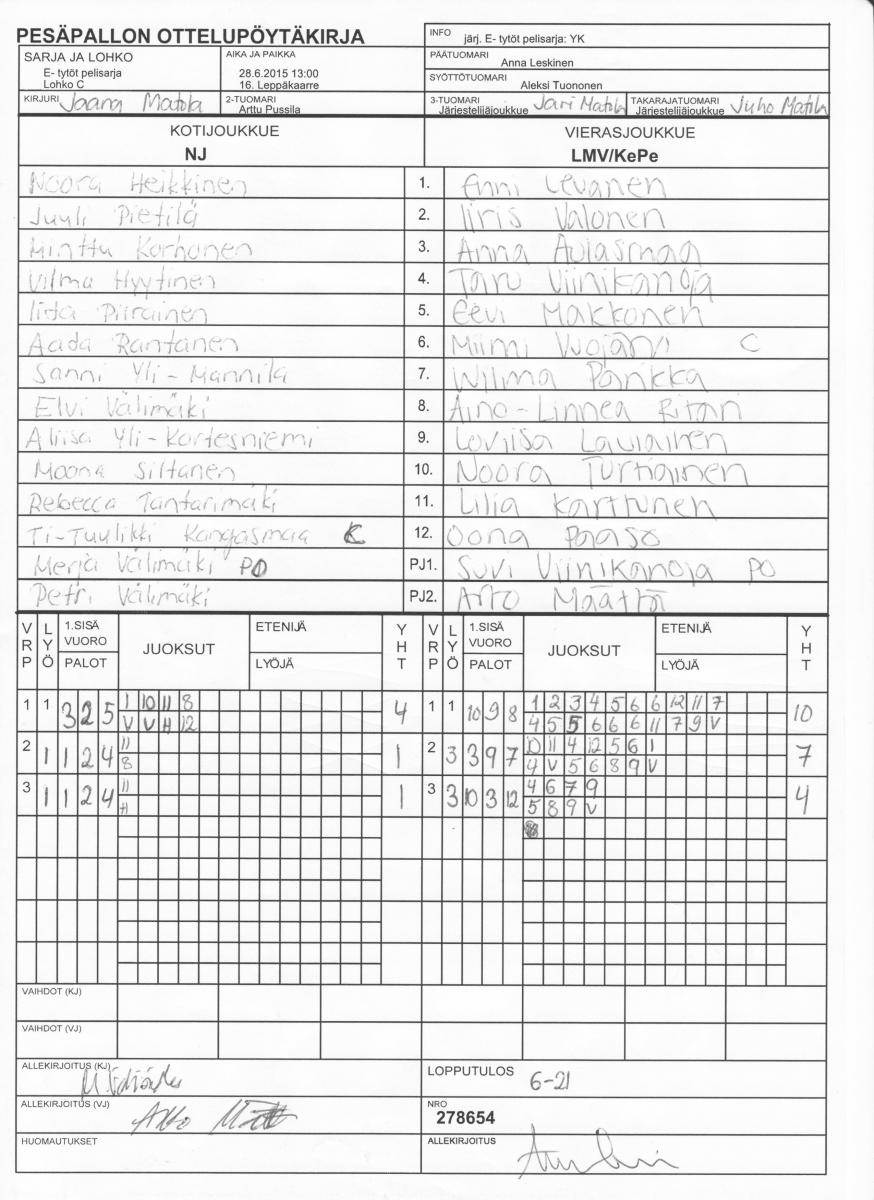 PESÄPALLON OTTELUPÖYTÄKIRJA
INFO järj. E- tytöt pelisarja: YK
PÄÄTUOMARI Anna Leskinen
SYÖTTÖTUOMARI Aleksi Tuononen
SARJA JA LOHKO
E- tytöt pelisarja
Lohko C
AIKA JA PAIKKA
28.6.2015 13:00
16. Leppäkaarre
KIRJURI Jaana Matola
2-TUOMARI
Arttu Pussila
3-TUOMARI Jari Matola
Järjestelijäjoukkue
TAKARAJATUOMARI Juho Matola
Järjestelijäjoukkue
KOTIJOUKKUE VIERASJOUKKUE
NJ LMV/KePe
Noora Heikkinen 1. Enni Levanen
Juuli Pietilä 2. Iiris Valonen
Minttu Korhonen 3. Anna Aulasmaa
Vilma Hyytinen 4. Taru Viinikanoja
Iita Piirainen 5. Eevi Makkonen
Aada Rantanen 6. Miimi C
Sanni Yli-Mannila 7. Wilma Pänkkä
Elvi Välimäki 8. Aino-Linnea Ritari
Aliisa Yli-Kortesniemi 9. Loviisa Laulainen
Moona Siltanen 10. Noora Turtiainen
Rebecca Tantarimäki 11. Lilia Karttunen
Ti-Tuulikki Kangasmaa C 12. Oona Paaso
Merja Välimäki PO PJ1. Suvi Viinikanoja PO
Petri Välimäki PJ2. Arto Määttä
VRP LYÖ 1.SISÄ VUORO PALOT JUOKSUT ETENIJÄ LYÖJÄ YHT VRP LYÖ 1.SISÄ VUORO PALOT JUOKSUT ETENIJÄ LYÖJÄ YHT
1 1 3 2 5 1 10 11 8 4 1 1 10 9 8 1 2 3 4 5 6 6 12 11 7 10
V V H 12 4 5 5 6 6 6 11 7 9 V
2 1 1 2 4 11 1 2 3 3 9 7 10 11 4 12 5 6 1 7
8 4 V 5 6 8 9 V
3 1 1 2 4 11 1 3 3 10 3 12 4 6 7 9 4
H 5 8 9 V
VAIHDOT (KJ)
VAIHDOT (VJ)
ALLEKIRJOITUS (KJ)
LOPPUTULOS 6-21
ALLEKIRJOITUS (VJ) Arto
NRO
278654
HUOMAUTUKSET
ALLEKIRJOITUS